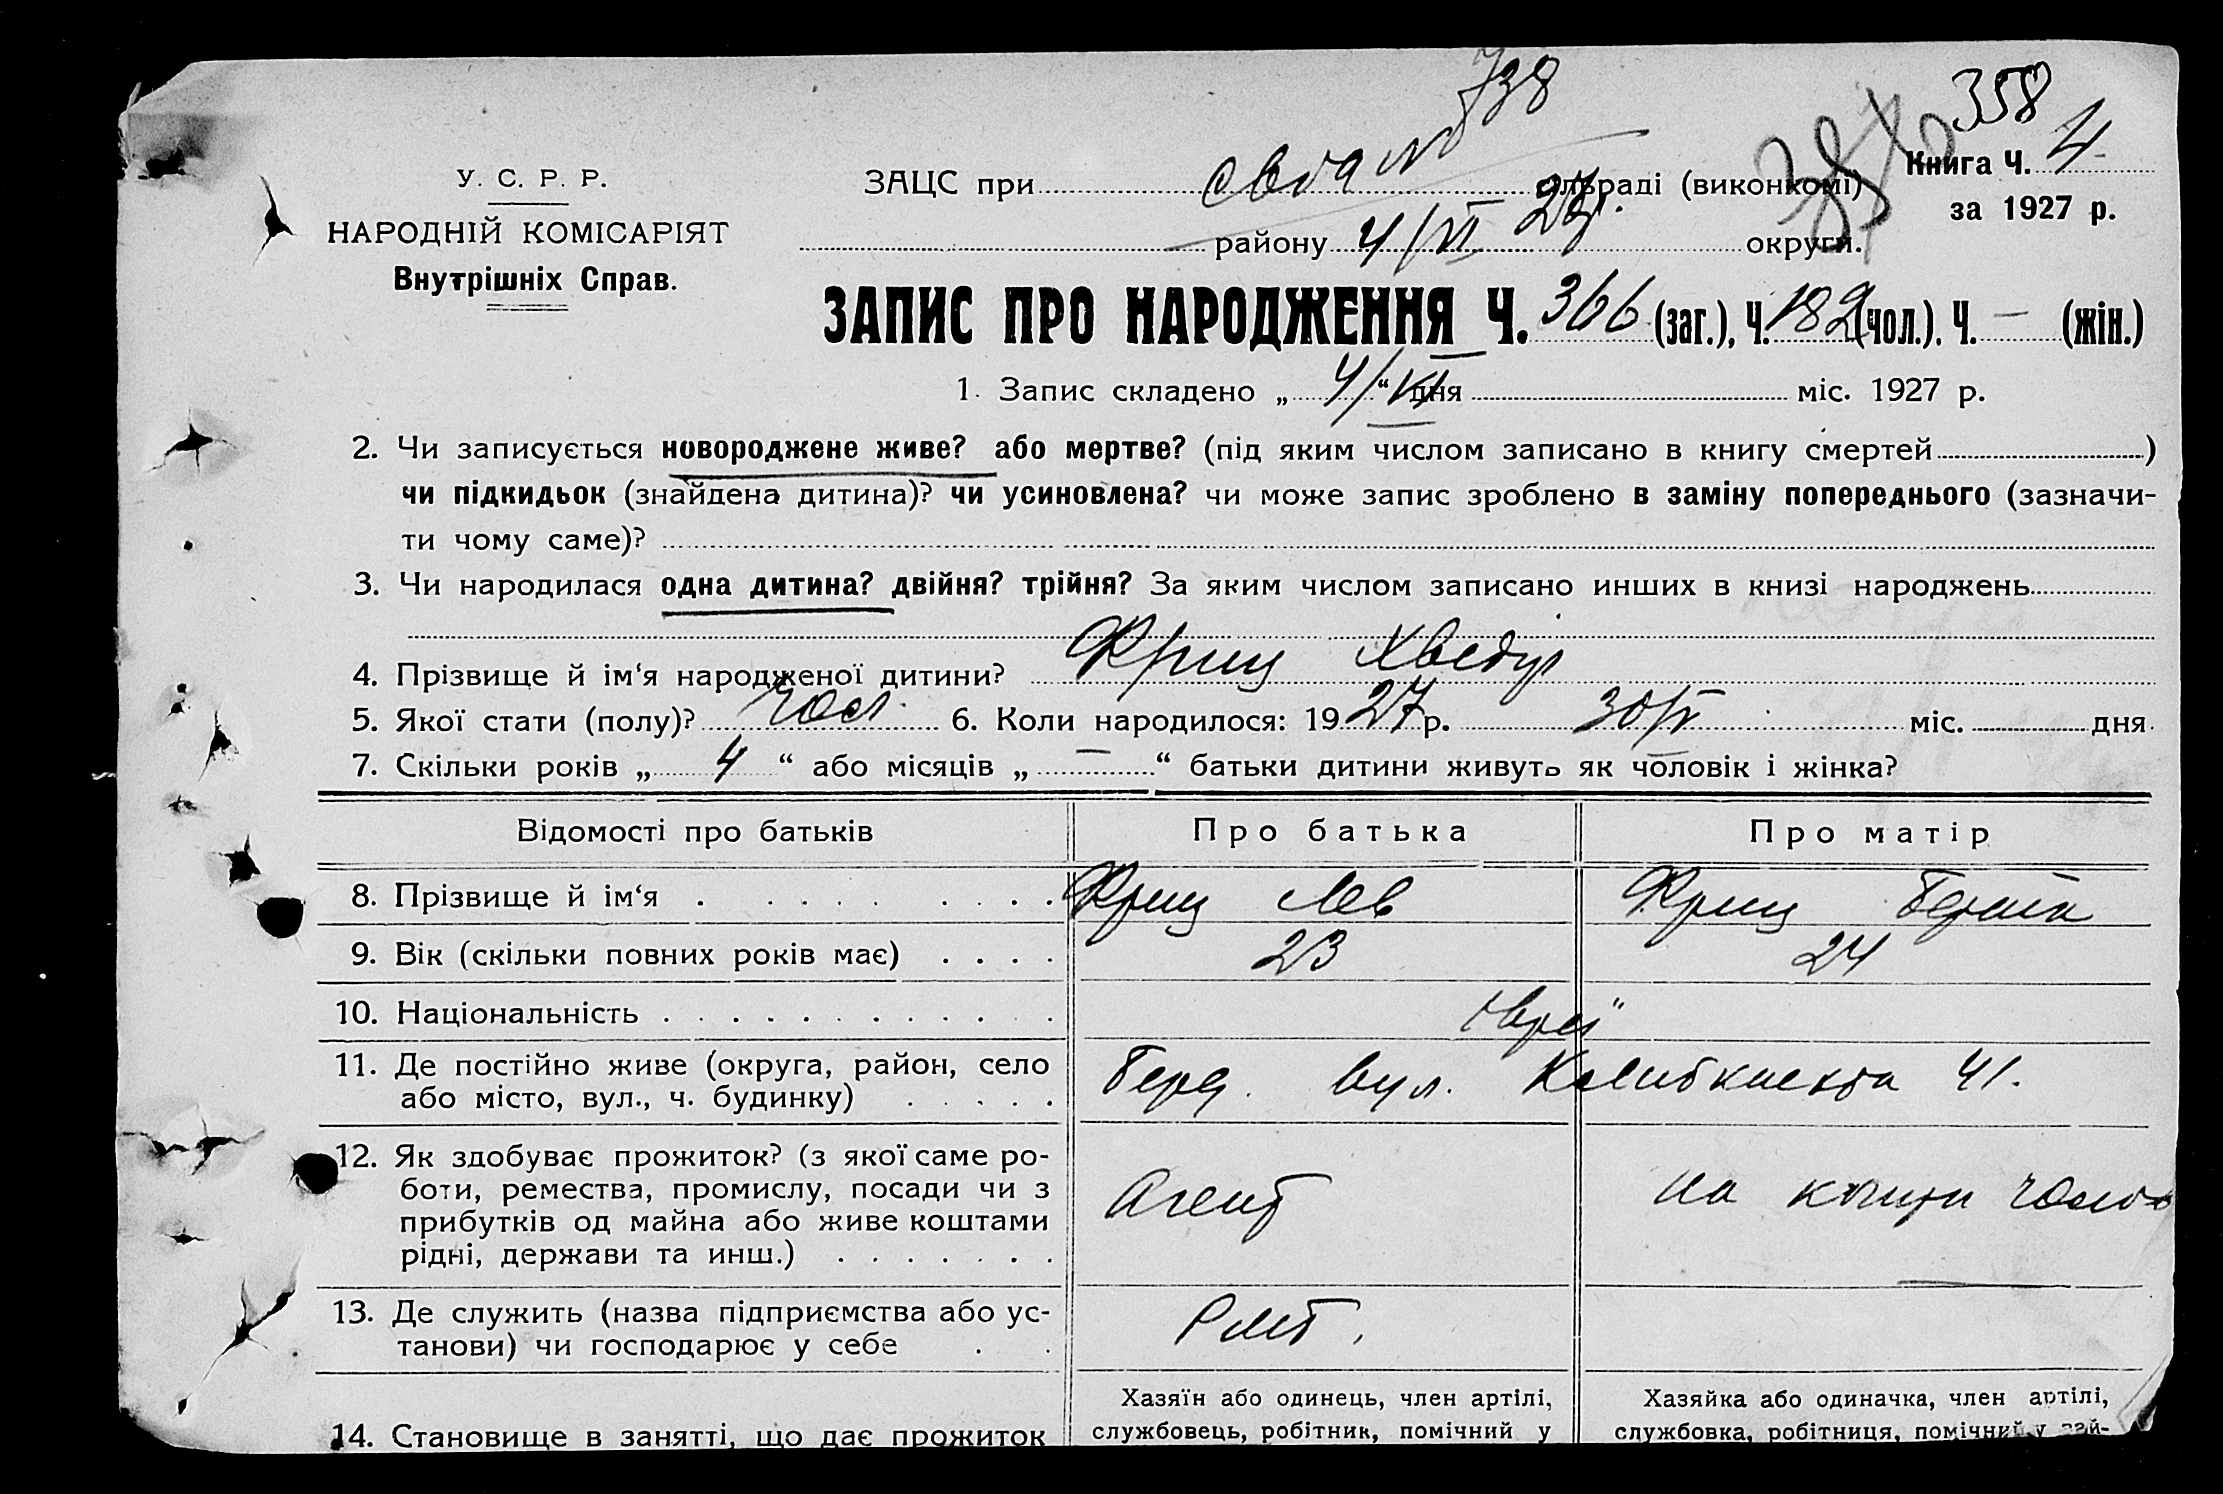 738
358
У. С. Р. Р.
НАРОДНІЙ КОМІСАРІЯТ
Внутрішніх Справ.
ЗАЦС при сільраді (виконкомі)
Книга Ч. 4
за 1927 р.
району 4/VI 27р. округи.
ЗАПИС ПРО НАРОДЖЕННЯ Ч. 366 (заг.), Ч. 182 (чол.). Ч. — (жін.)
1. Запис складено „ 4/VI “ дня міс. 1927 р.
2. Чи записується новороджене живе? або мертве? (під яким числом записано в книгу смертей )
чи підкидьок (знайдена дитина)? чи усиновлена? чи може запис зроблено в заміну попереднього (зазначи-
ти чому саме)?
3. Чи народилася одна дитина? двійня? трійня? За яким числом записано инших в книзі народжень
4. Прізвище й ім‘я народженої дитини?
5. Якої стати (полу)? чол. 6. Коли народилося: 1927 р. 30/V міс. дня
7. Скільки років „ 4 “ або місяців „ — “ батьки дитини живуть як чоловік і жінка?
Відомості про батьків Про батька Про матір
8. Прізвище й ім‘я . . . . . . . . . Лев
9. Вік (скільки повних років має) . . . . 23 24
10. Національність . . . . . . . . . . . . євреї
11. Де постійно живе (округа, район, село
або місто, вул., ч. будинку) . . . . . Берд. вул. 41.
12. Як здобуває прожиток? (з якої саме ро-
боти, ремества, промислу, посади чи з
прибутків од майна або живе коштами
рідні, держави та инш.) . . . . . . . Агент на кошти чолов
13. Де служить (назва підприємства або ус-
танови) чи господарює у себе . .
14. Становище в занятті, що дає прожиток
Хазяїн або одинець, член артілі,
службовець, робітник, помічний у
Хазяйка або одиначка, член артілі,
службовка, робітниця, помічний у зай-